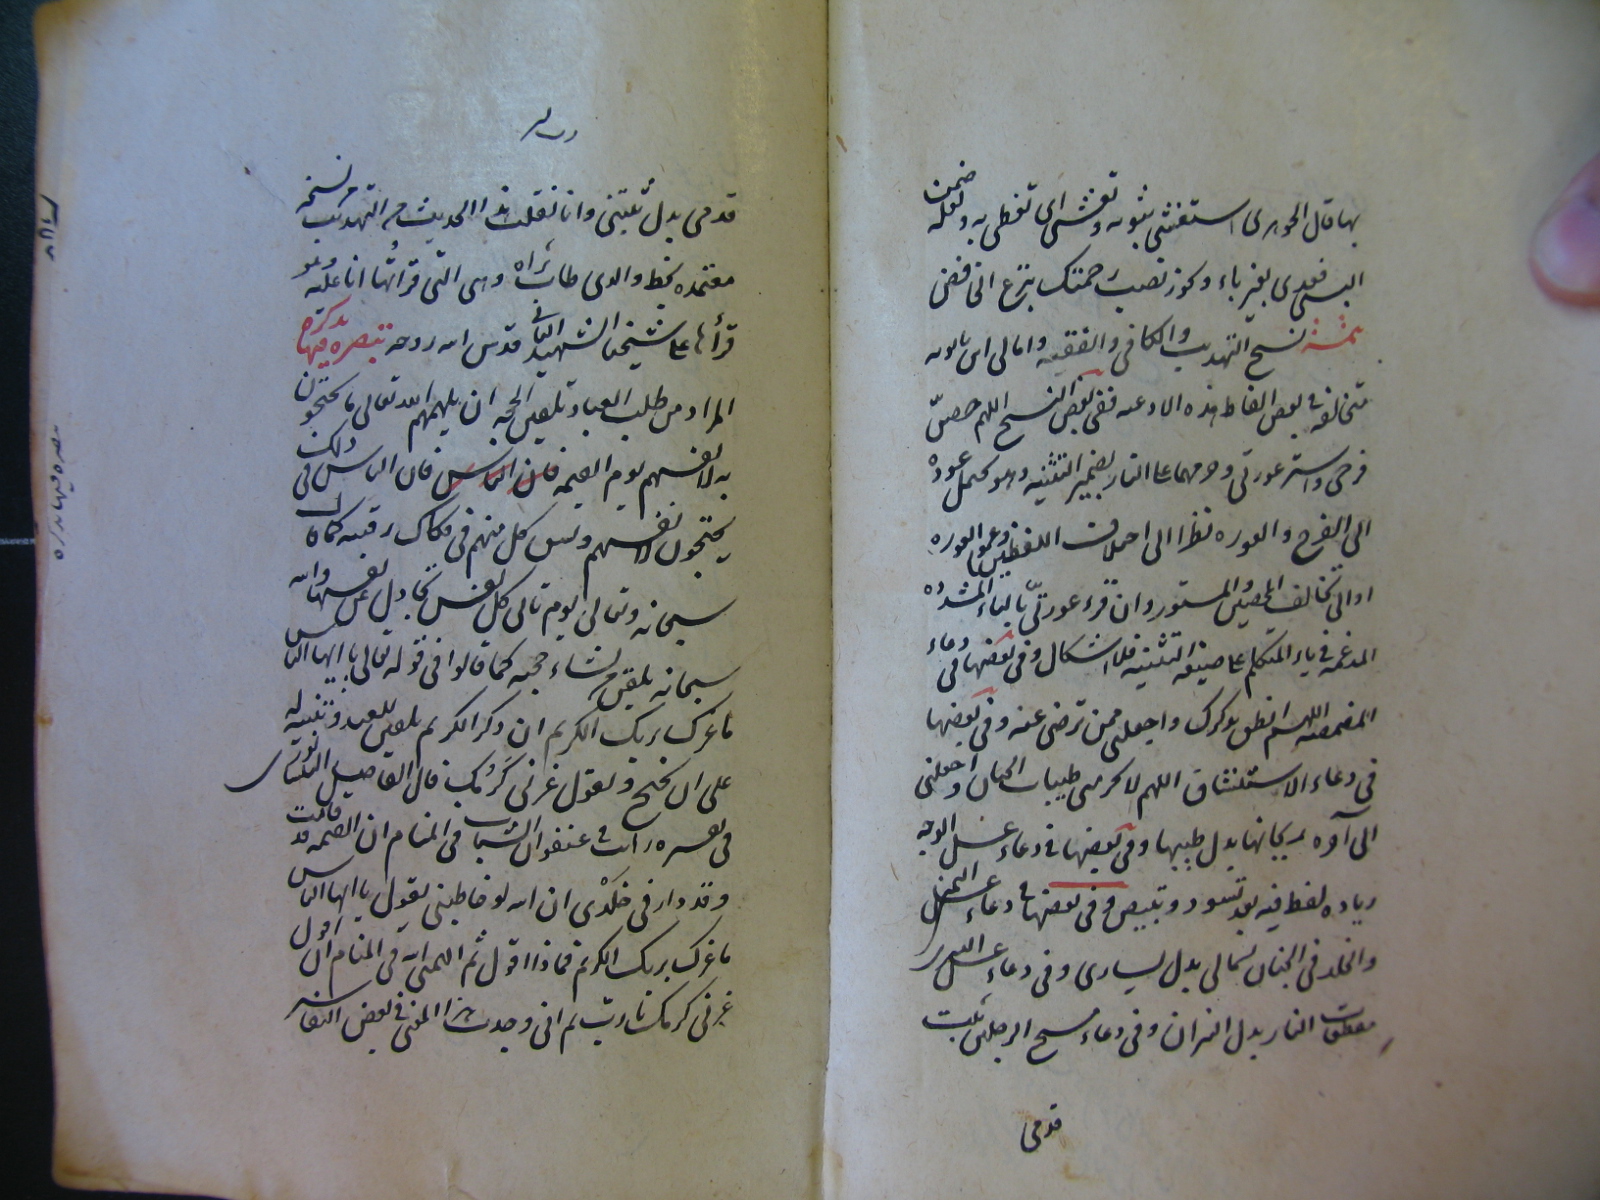 بها قال الجوهري استغشى بثوبه وتغشى اي تغطى به ولعله ضمن
البس فعدى بغير باء وكون نصب رحمتك بنزع الخافض
تتمة نسخ التهذيب والكافي والفقيه وامالي ابن بابويه
متخالفة في بعض الفاظ هذه الادعيه ففي بعض النسخ اللهم حصن
فرجي واستر عورتي وحرمهما على النار بضمير التثنيه وهو محتمل عوده
الى الفرج والعوره نظرا الى اختلاف اللفظين وعموم العوره
او الى تخالف التحصين والمستور وان قرء عورتي بالياء المشدده
المدغمه في ياء المتكلم على صيغة التثنيه فلا اشكال وفي بعضها في دعاء
المضمضه اللهم انطق بذكرك واجعلني ممن ترضى عنه وفي بعضها
في دعاء الاستنشاق اللهم لا تحرمني طيبات الجنان واجعلني
الى آخره ريحانها بدل طيبها وفي بعضها في دعاء غسل الوجه
زياده لفظ فيه بعد تسود وتبيض وفي بعضها في دعاء غسل اليمنى
والخلد في الجنان بشمالي بدل بيساري وفي دعاء غسل اليسرى
مقطعات النار بدل النيران وفي دعاء مسح الرجلين ثبت
قدمي
قدمي بدل ثبتني وانا نقلت هذا الحديث من التهذيب من نسخة
معتمده بخط والدي طاب ثراه وهي التي قرأتها انا عليه وهو
قرأها على شيخنا الشهيد الثاني قدس الله روحه تبصره فيها تذكره
المراد من طلب العباد تلقين الحجه ان يلهمهم الله تعالى ما يحتجون
به لانفسهم يوم القيمه فان الناس فان الناس في ذلك
يحتجون لانفسهم ويسعى كل منهم في فكاك رقبته كما قال
سبحانه وتعالى يوم تاتي كل نفس تجادل عن نفسها والله
سبحانه يلقن من يشاء حجته كما قالوا في قوله تعالى يا ايها الناس
ما غرك بربك الكريم ان ذكر الكريم تلقين للعبد وتنبيه له
على ان يحتج ويقول غرني كرمك قال الفاضل النيسابوري
في تفسيره رأيت في عنفوان الشباب في المنام ان القيمه قد قامت
وقد دار في خلدي ان الله لو خاطبني بقول يا ايها الناس
ما غرك بربك الكريم فماذا اقول ثم الهمني الله في المنام ان اقول
غرني كرمك يا رب ثم اني وجدت هذا المعنى في بعض التفاسير
تبصره فيها تذكره